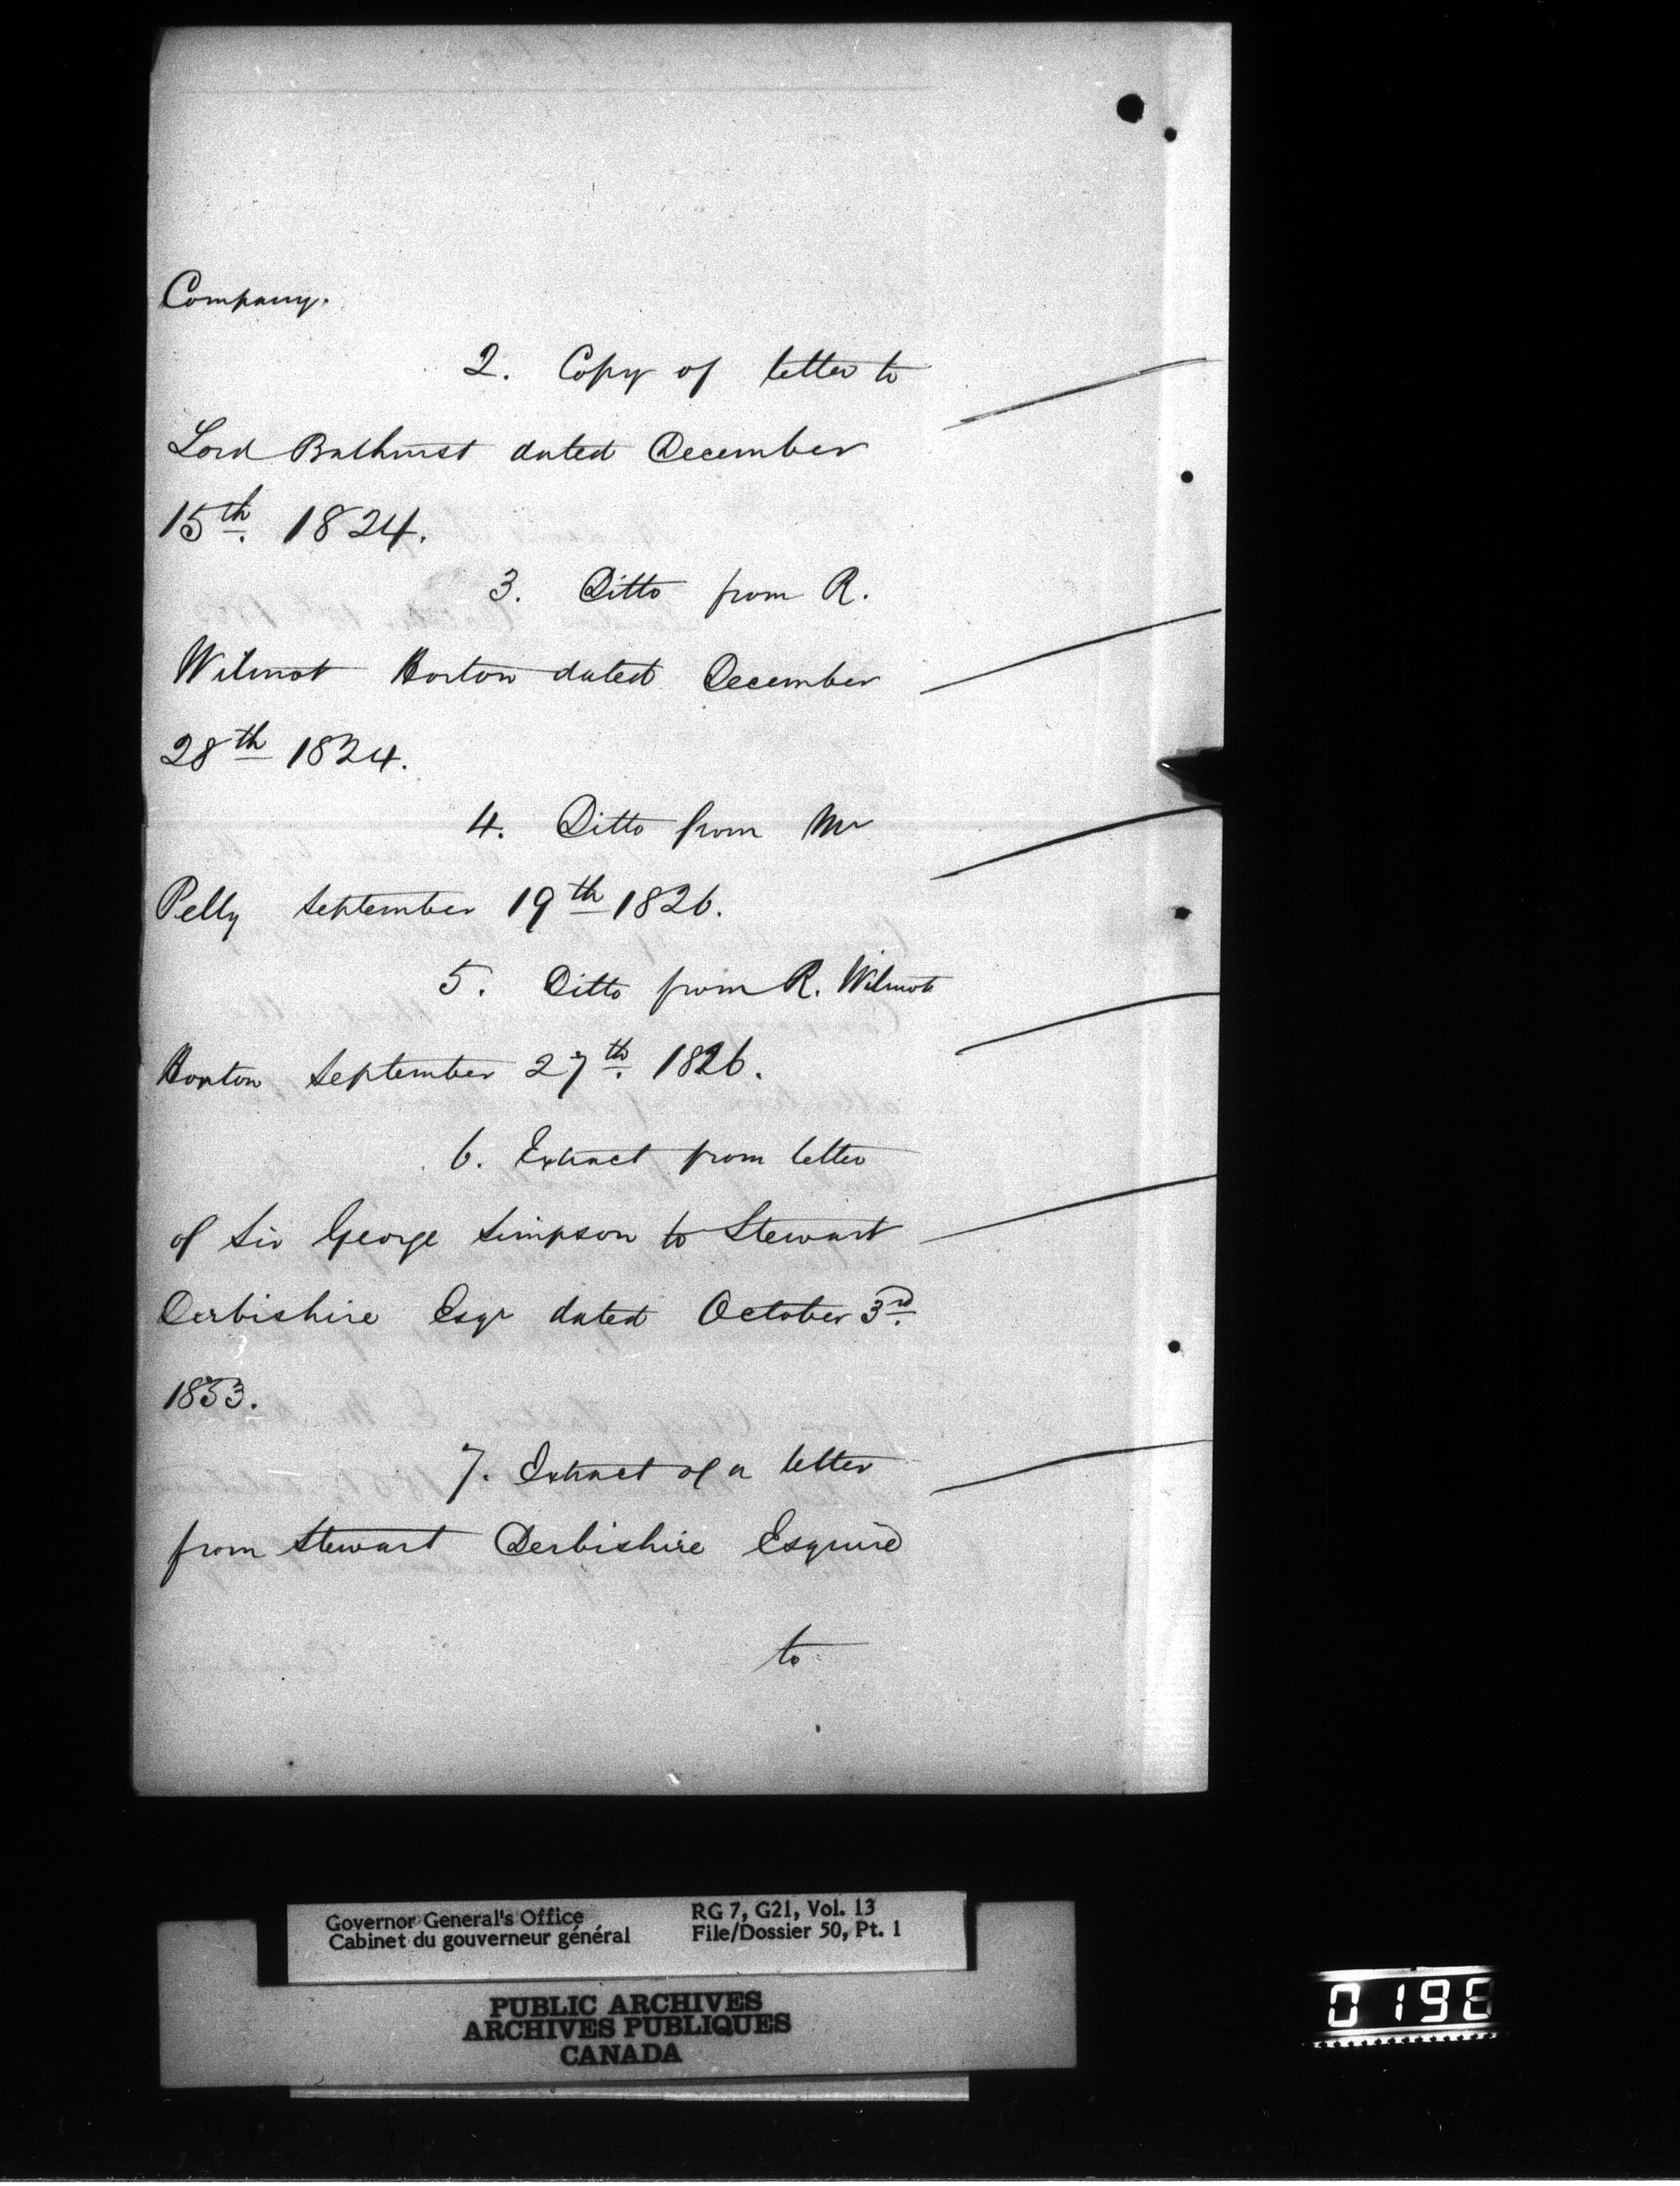 Company.
2. Copy of letter to
Lord Bathurst dated December
15th. 1824.
3. Ditto from R.
Wilmot Horton dated December
28th 1824.
4. Ditto from Mr
Pelly September 19th 1826.
5. Ditto from R. Wilmot
Horton September 27th. 1826.
6. Extract from letter
of Sir George Simpson to Stewart
Derbishire Esqr dated October 3rd.
1853.
7. Extract of a letter
from Stewart Derbishire Esquire
to
Governor General's Office
Cabinet du gouverneur général
RG 7, G21, Vol. 13
File/Dossier 50, Pt. 1
PUBLIC ARCHIVES
ARCHIVES PUBLIQUES
CANADA